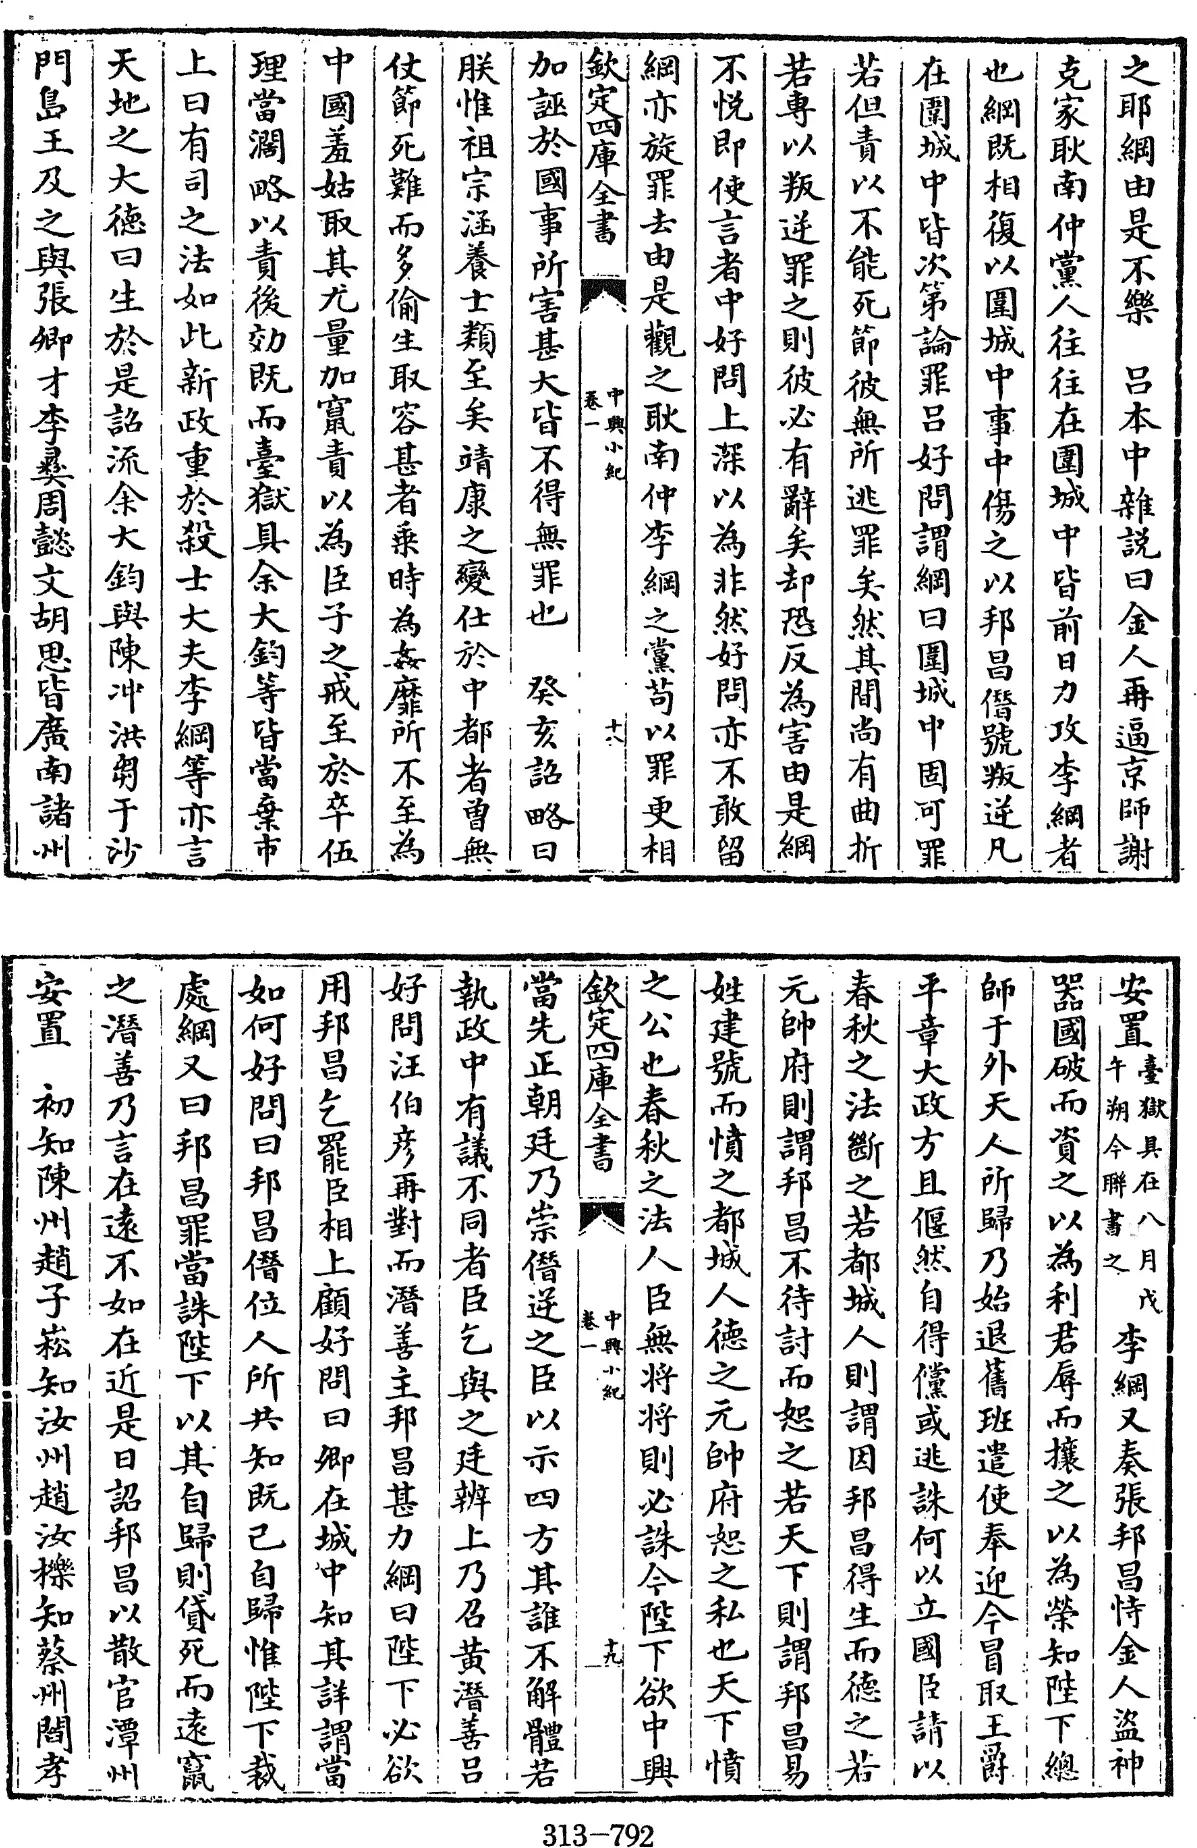 之耶綱由是不樂　呂本中雜説曰金人再逼京師謝
克家耿南仲黨人往往在圍城中皆前日力攻李綱者
也綱既相復以圍城中事中傷之以邦昌僭號叛逆凡
在圍城中皆次第論罪呂好問謂綱曰圍城中固可罪
若但責以不能死節彼無所逃罪矣然其間尚有曲折
若專以叛逆罪之則彼必有辭矣却恐反為害由是綱
不悦即使言者中好問上深以為非然好問亦不敢留
綱亦旋罪去由是觀之耿南仲李綱之黨苟以罪更相
欽定四庫全書
中興小紀
卷一
十八
加誣於國事所害甚大皆不得無罪也　癸亥詔略曰
朕惟祖宗涵養士類至矣靖康之變仕於中都者曽無
仗節死難而多偷生取容甚者乘時為姦靡所不至為
中國羞姑取其尤量加竄責以為臣子之戒至於卒伍
理當濶略以責後効既而臺獄具余大鈞等皆當棄市
上曰有司之法如此新政重於殺士大夫李綱等亦言
天地之大德曰生於是詔流余大鈞與陳冲洪芻于沙
門島王及之與張卿才李彛周懿文胡思皆廣南諸州
安置臺獄具在八月戊
午朔今聯書之
李綱又奏張邦昌恃金人盜神
器國破而資之以為利君辱而攘之以為榮知陛下總
師于外天人所歸乃始退舊班遣使奉迎今冒取王爵
平章大政方且偃然自得儻或逃誅何以立國臣請以
春秋之法斷之若都城人則謂因邦昌得生而德之若
元帥府則謂邦昌不待討而恕之若天下則謂邦昌易
姓建號而憤之都城人德之元帥府恕之私也天下憤
之公也春秋之法人臣無将将則必誅今陛下欲中興
欽定四庫全書
中興小紀
卷一
十九
當先正朝廷乃崇僭逆之臣以示四方其誰不解體若
執政中有議不同者臣乞與之廷辨上乃召黄潛善呂
好問汪伯彦再對而潛善主邦昌甚力綱曰陛下必欲
用邦昌乞罷臣相上顧好問曰卿在城中知其詳謂當
如何好問曰邦昌僭位人所共知既已自歸惟陛下裁
處綱又曰邦昌罪當誅陛下以其自歸則貸死而遠竄
之潛善乃言在遠不如在近是日詔邦昌以散官潭州
安置　初知陳州趙子崧知汝州趙汝櫟知蔡州閻孝
313-792